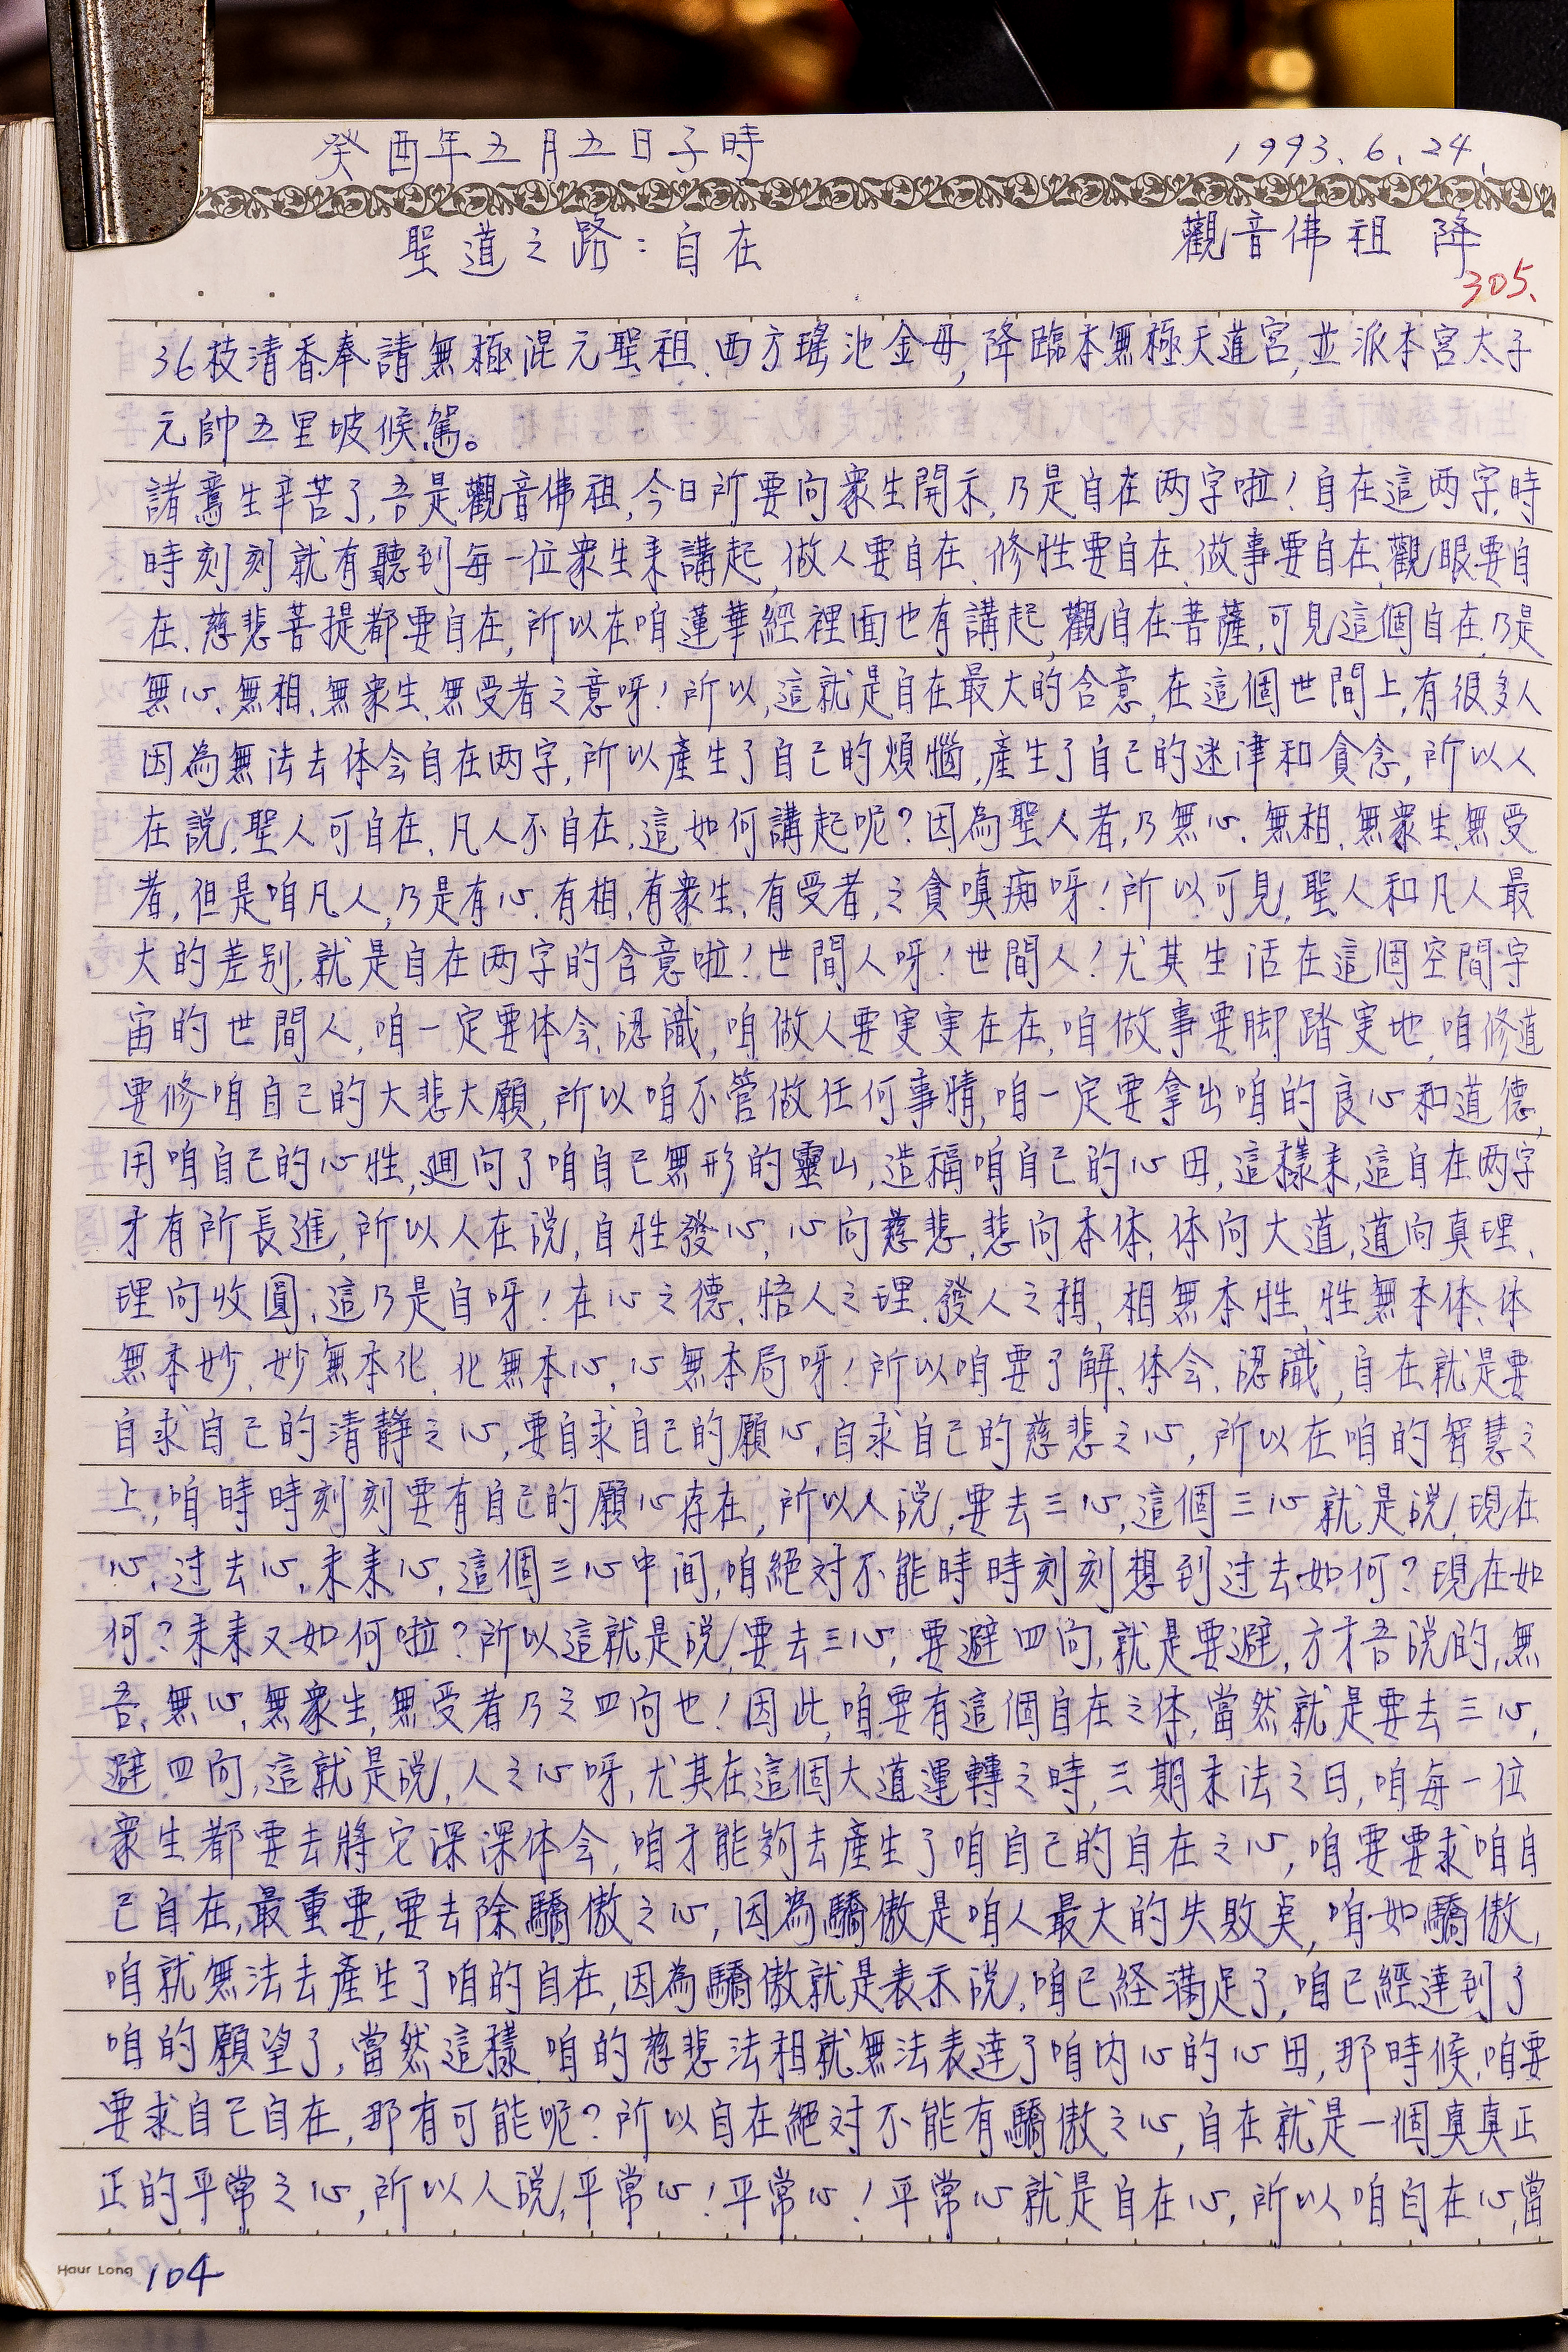 癸酉年五月五日子時
1993.6.24.
聖道之路:自在
觀音佛祖 降
305.
36枝清香奉請無極混元聖祖、西方瑤池金母,降臨本無極天蓮宮,並派本宮太子
元帥五里坡候駕。
諸鸞生辛苦了,吾是觀音佛祖,今日所要向衆生開示,乃是自在两字啦!自在這两字,時
時刻刻就有聽到每一位衆生來講起,做人要自在、修性要自在、做事要自在、觀眼要自
在、慈悲菩提都要自在,所以在咱蓮華經裡面也有講起,觀自在菩薩,可見這個自在,乃是
無心、無相、無衆生、無受者之意呀!所以,這就是自在最大的含意,在這個世間上,有很多人
因為無法去体会自在两字,所以產生了自己的煩惱,產生了自己的迷津和貪念,所以人
在說,聖人可自在、凡人不自在,這如何講起呢?因為聖人者,乃無心、無相、無衆生、無受
者,但是咱凡人,乃是有心、有相、有衆生、有受者,之貪嗔痴呀!所以可見,聖人和凡人最
大的差別,就是自在两字的含意啦!世間人呀!世間人!尤其生活在這個空間宇
宙的世間人,咱一定要体会、認識,咱做人要実実在在,咱做事要脚踏実地,咱修道
要修咱自己的大悲大願,所以咱不管做任何事情,咱一定要拿出咱的良心和道德,
用咱自己的心性,廻向了咱自己無形的靈山,造福咱自己的心田,這樣來,這自在两字
才有所長進,所以人在說,自性發心,心向慈悲,悲向本体,体向大道,道向真理、
理向收圓,這乃是自呀!在心之德、悟人之理、發人之相,相無本性,性無本体、体
無本妙、妙無本化、化無本心,心無本局呀!所以咱要了解、体会、認識,自在就是要
自求自己的清靜之心,要自求自己的願心,自求自己的慈悲之心,所以在咱的智慧之
上,咱時時刻刻要有自己的願心存在,所以人說,要去三心,這個三心就是說,現在
心,过去心,未來心,這個三心中间,咱絕对不能時時刻刻想到过去如何?現在如
何?未來又如何啦?所以這就是說,要去三心,要避四向,就是要避,方才吾說的,無
吾、無心,無衆生,無受者乃之四向也!因此,咱要有這個自在之体,當然就是要去三心,
避四向,這就是說,人之心呀,尤其在這個大道運轉之時,三期末法之日,咱每一位
衆生都要去將它深深体会,咱才能夠去產生了咱自己的自在之心,咱要要求咱自
己自在,最重要,要去除驕傲之心,因為驕傲是咱人最大的失敗点,咱如驕傲,
咱就無法去產生了咱的自在,因為驕傲就是表示說,咱已経満足了,咱已經達到了
咱的願望了,當然這樣,咱的慈悲法相就無法表達了咱内心的心田,那時候,咱要
要求自己自在,那有可能呢?所以自在絕对不能有驕傲之心,自在就是一個真真正
正的平常之心,所以人說,平常心!平常心!平常心就是自在心,所以咱自在心,當
Haur Long 104